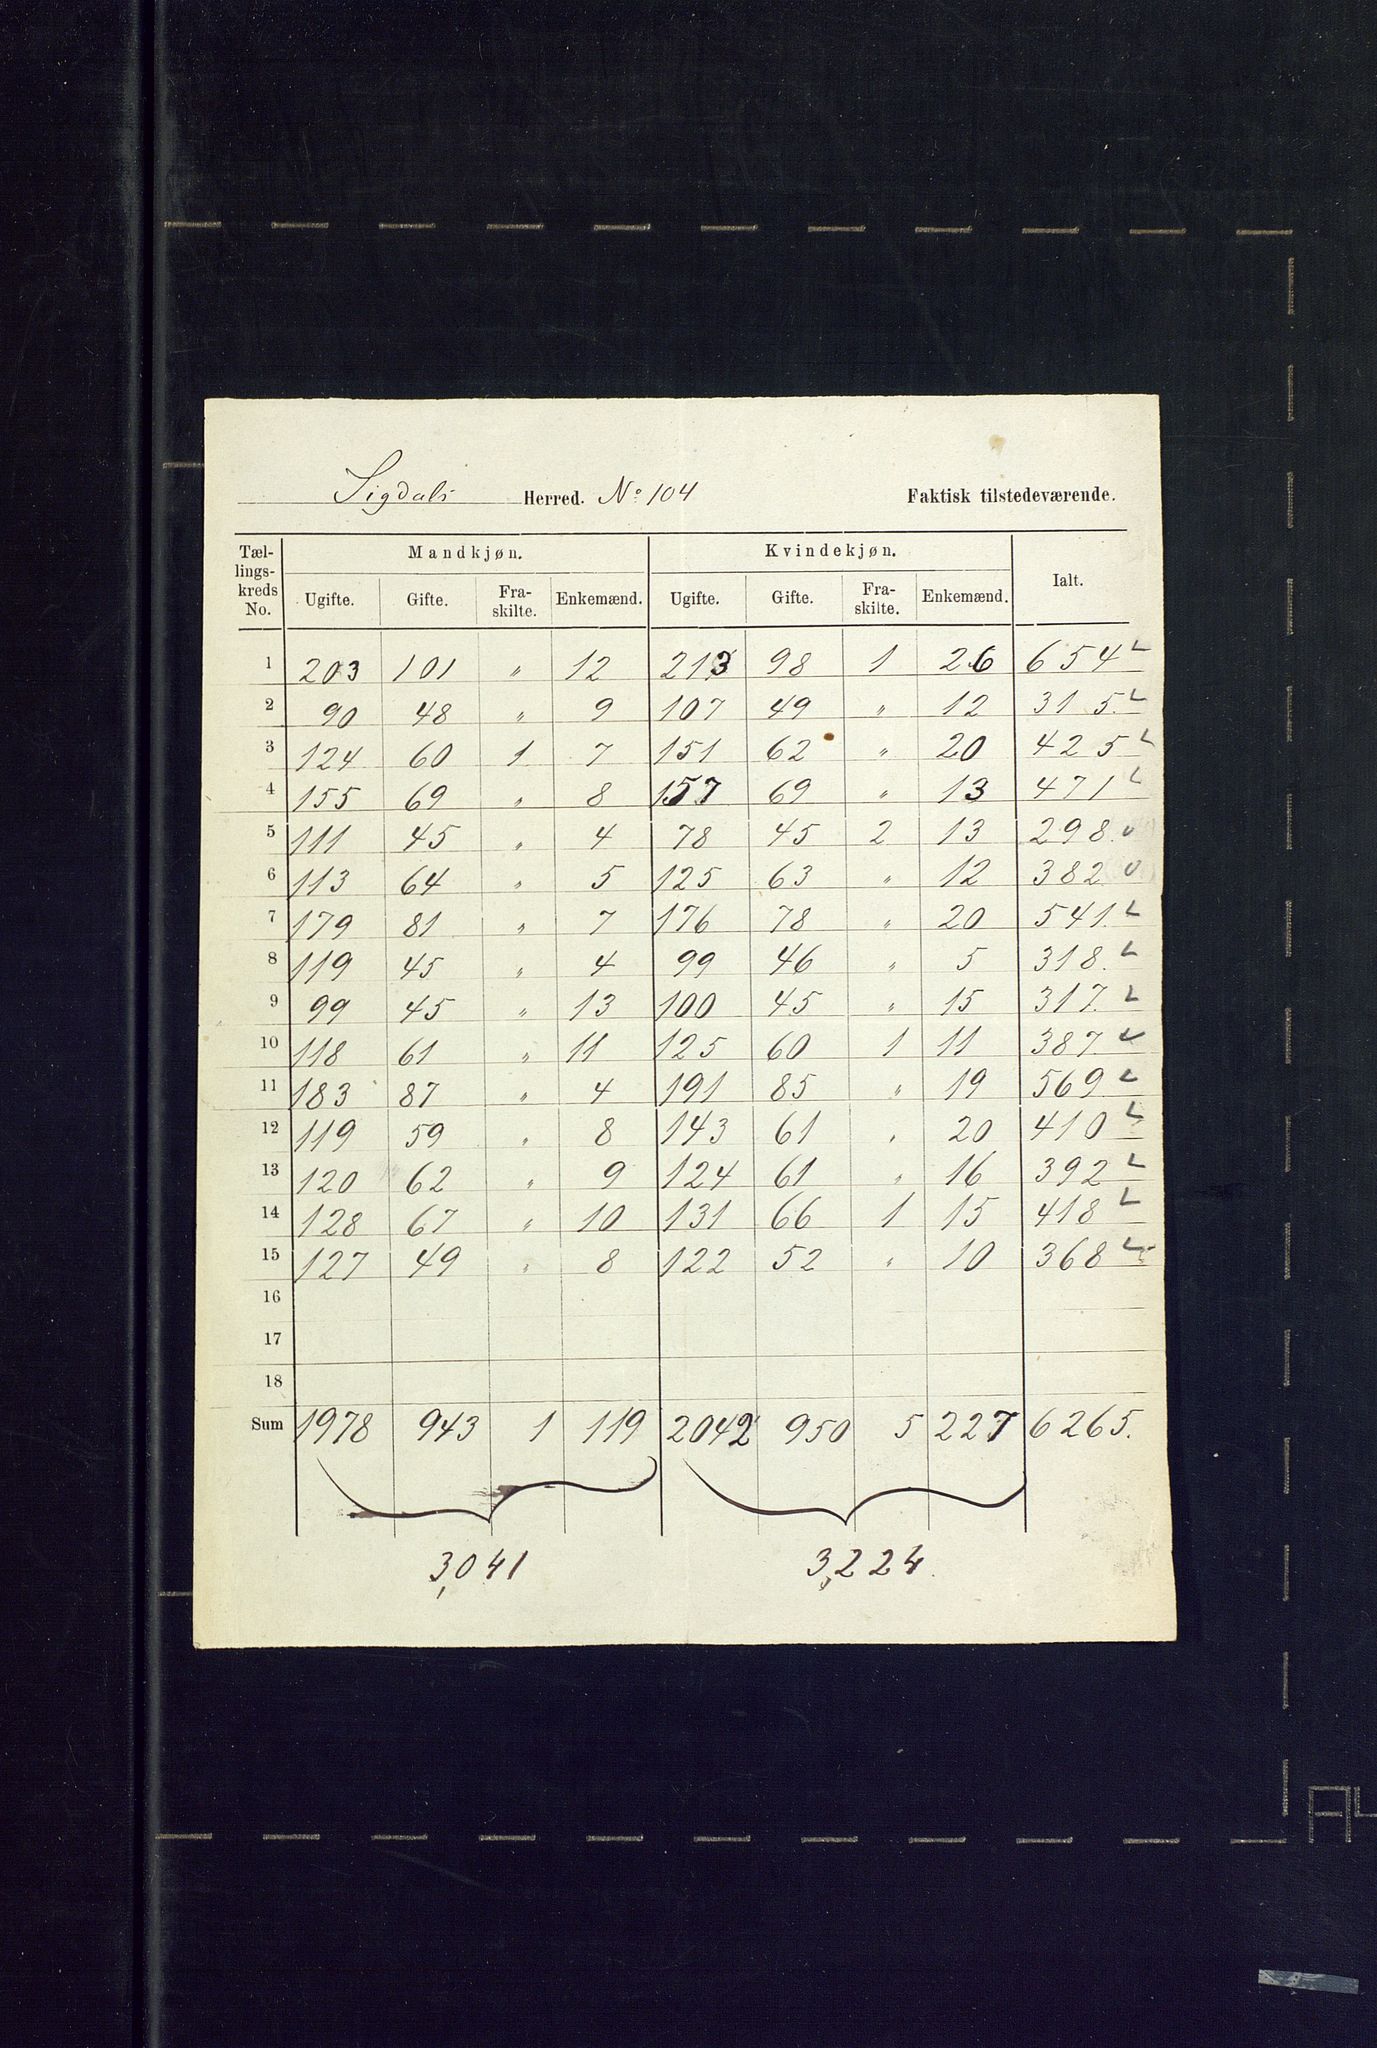 Sigdals Herred. No 104 Faktisk tilstedeværende.
Tæl-lings-kreds No. Mandkjøn. Kvindekjøn. Ialt.
Ugifte. Gifte. Fra-skilte. Enkemænd. Ugifte. Gifte. Fra-skilte. Enkemænd.
1 203 101 " 12 213 98 1 26 654
2 90 48 " 9 107 49 " 12 315.
3 124 60 1 7 151 62 " 20 425
4 155 69 " 8 157 69 " 13 471
5 111 45 " 4 78 45 2 13 298.
6 113 64 " 5 125 63 " 12 382
7 179 81 " 7 176 78 " 20 541.
8 119 45 " 4 99 46 " 5 318.
9 99 45 " 13 100 45 " 15 317.
10 118 61 " 11 125 60 1 11 387.
11 183 87 " 4 191 85 " 19 569
12 119 59 " 8 143 61 " 20 410
13 120 62 " 9 124 61 " 16 392
14 128 67 " 10 131 66 1 15 418
15 127 49 " 8 122 52 " 10 368
16
17
18
Sum 1978 943 1 119 2042 950 5 227 6265.
3,041 3,224.
A4